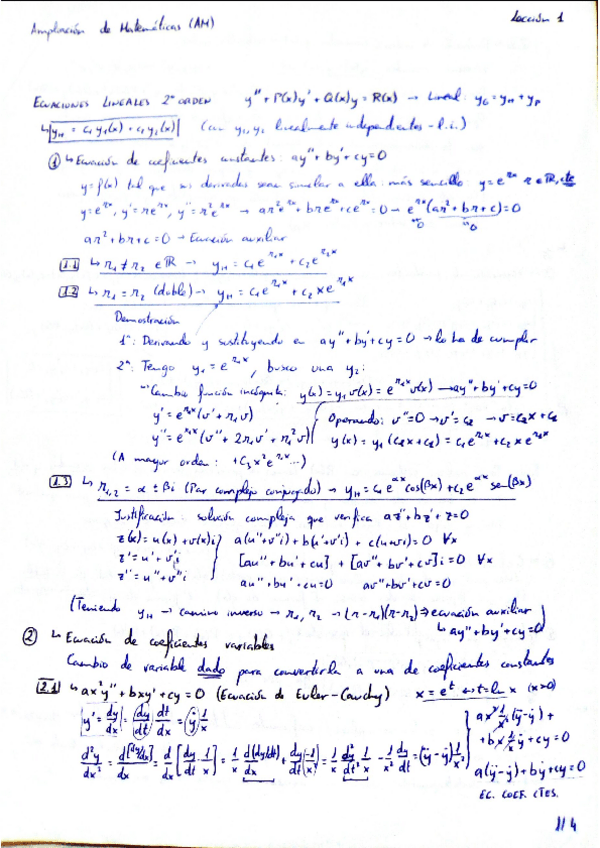 Ampliación de Matemáticas (AM)
Lección 1
ECUACIONES LINEALES 2º ORDEN y'' + P(x)y' + Q(x)y = R(x) → Lineal: y_G = y_H + y_p
↳ y_H = c₁y₁(x) + c₂y₂(x) (con y₁, y₂ linealmente independientes - l.i.)
① ↳ Ecuación de coeficientes constantes: ay'' + by' + cy = 0
y = f(x) tal que sus derivadas sean similar a ella: más sencillo: y = e^{rx} r ∈ ℝ, cte
y = e^{rx}, y' = re^{rx}, y'' = r²e^{rx} → ar²e^{rx} + bre^{rx} + ce^{rx} = 0 → e^{rx}(ar² + br + c) = 0
≠0 =0
ar² + br + c = 0 → Ecuación auxiliar
1.1 ↳ r₁ ≠ r₂ ∈ ℝ → y_H = c₁e^{r₁x} + c₂e^{r₂x}
1.2 ↳ r₁ = r₂ (doble) → y_H = c₁e^{r₁x} + c₂xe^{r₁x}
Demostración
1º: Derivando y sustituyendo en ay'' + by' + cy = 0 → lo ha de cumplir
2º: Tengo y₁ = e^{r₁x}, busco una y₂:
Cambio función incógnita: y(x) = y₁v(x) = e^{r₁x}v(x) → ay'' + by' + cy = 0
y' = e^{r₁x}(v' + r₁v) Operando: v'' = 0 → v' = c₂ → v = c₂x + c₁
y'' = e^{r₁x}(v'' + 2r₁v' + r₁²v) y(x) = y₁(c₂x + c₁) = c₁e^{r₁x} + c₂xe^{r₁x}
(A mayor orden: +c₃x²e^{r₁x}...)
1.3 ↳ r₁,₂ = α ± βi (Par complejo conjugado) → y_H = c₁e^{αx}cos(βx) + c₂e^{αx}sen(βx)
Justificación: solución compleja que verifica az'' + bz' + z = 0
z(x) = u(x) + v(x)i a(u'' + v''i) + b(u' + v'i) + c(u + vi) = 0 ∀x
z' = u' + v'i [au'' + bu' + cu] + [av'' + bv' + cv]i = 0 ∀x
z'' = u'' + v''i au'' + bu' + cu = 0 av'' + bv' + cv = 0
(Teniendo y_H → camino inverso → r₁, r₂ → (r - r₁)(r - r₂) ⇒ ecuación auxiliar
↳ ay'' + by' + cy = 0)
② ↳ Ecuación de coeficientes variables
Cambio de variable dado para convertirla a una de coeficientes constantes
2.1 ↳ ax²y'' + bxy' + cy = 0 (Ecuación de Euler-Cauchy) x = e^t ↔ t = ln x (x>0)
y' = dy/dx = dy/dt dt/dx = ẏ 1/x ax² 1/x² (ÿ - ẏ) +
+ bx 1/x ẏ + cy = 0
d²y/dx² = d[dy/dx]/dx = d/dx [dy/dt · 1/x] = 1/x d(dy/dt)/dx + dy/dt (-1/x²) = 1/x d²y/dt² 1/x - 1/x² dy/dt = (ÿ - ẏ) 1/x²
a(ÿ - ẏ) + bẏ + cy = 0
EC. COEF. CTES.
1/4